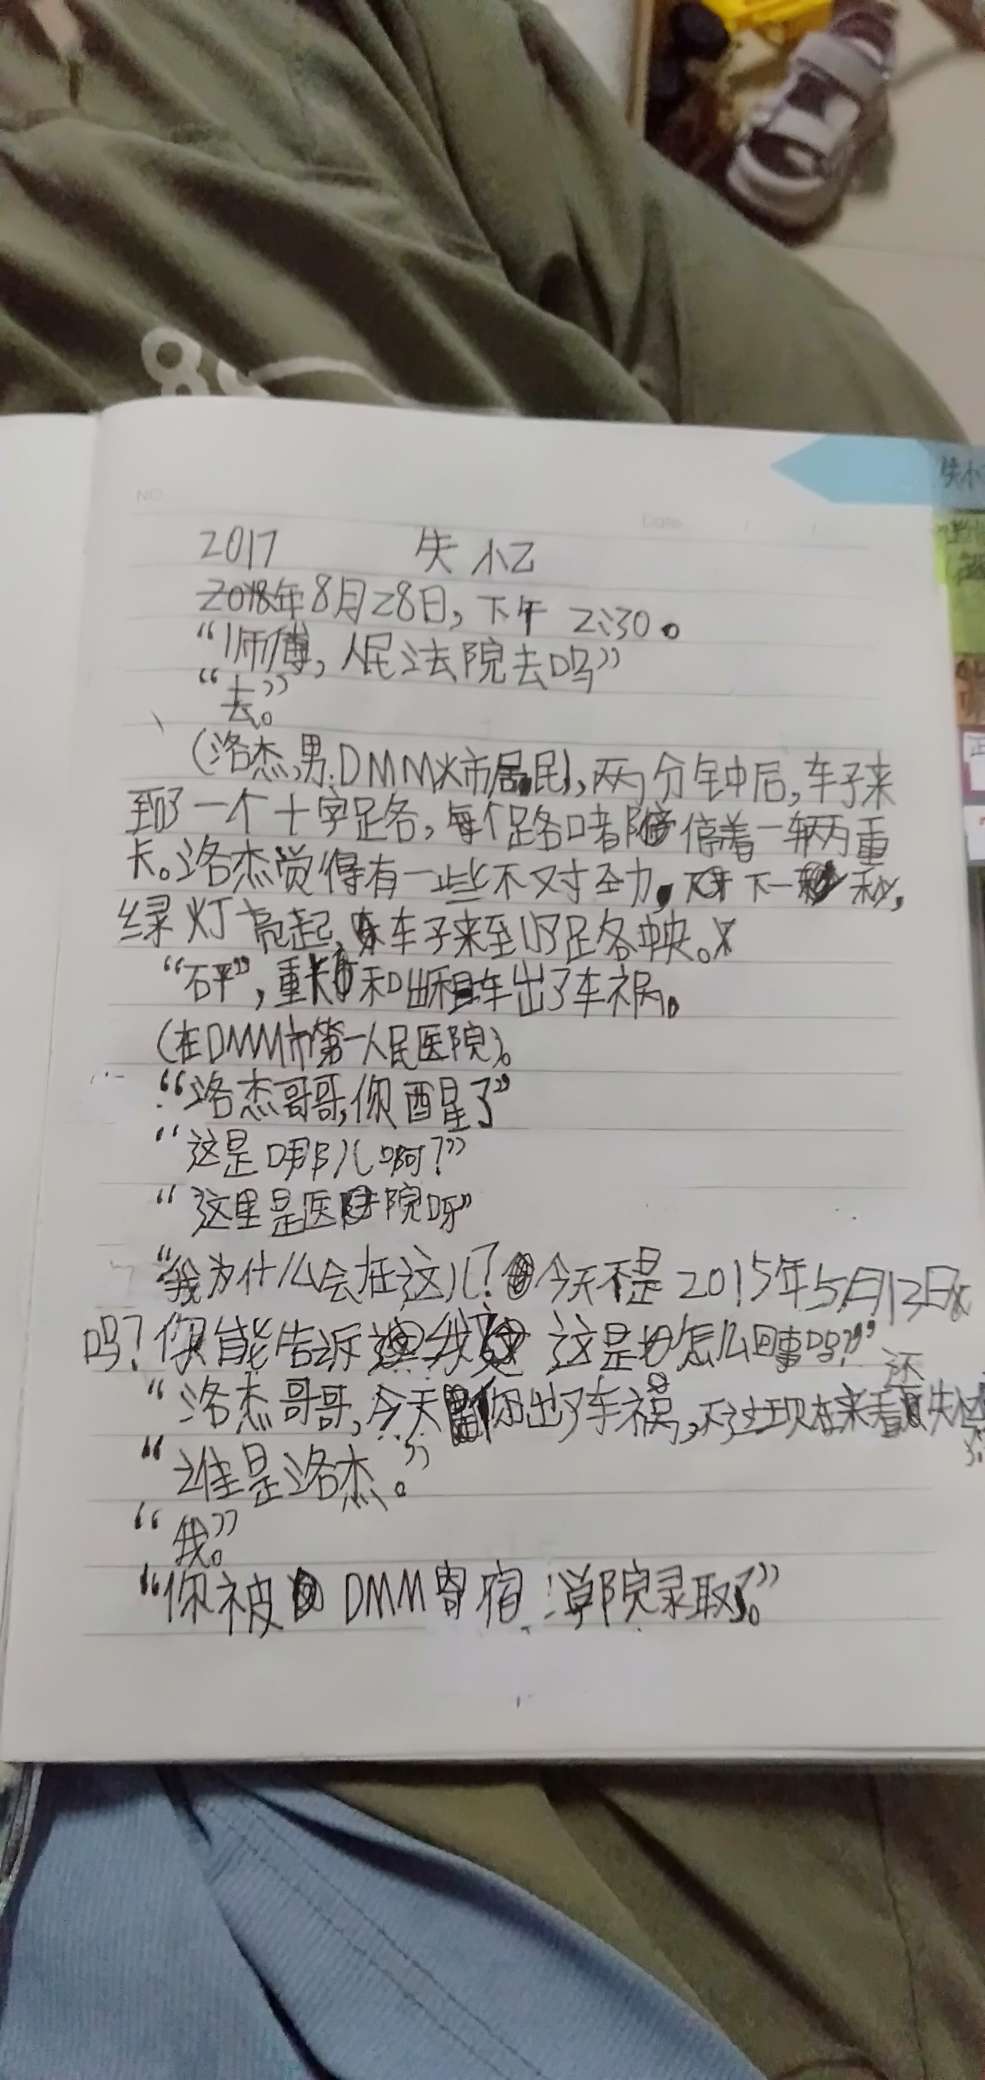 NO.
Date
2017 失忆
2018年8月28日，下午 2:30。
“师傅，人民法院去吗”
“去。”
（洛杰，男，DMM市居民），两分钟后，车子来
到了一个十字路口，每个路口都停着一辆重
卡。洛杰觉得有一些不对劲，下一秒，
绿灯亮起，车子来到了路中央。
“砰”，重卡和出租车出了车祸。
（在DMM市第一人民医院）。
“洛杰哥哥，你醒了”
“这是哪儿啊？”
“这里是医院呀”
“我为什么会在这儿？今天不是2015年5月13日
吗？你能告诉我这是怎么回事吗？”
“洛杰哥哥，今天你出了车祸，不过现在来看还失忆
了
“谁是洛杰。”
“我。”
“你被DMM寄宿学院录取了。”